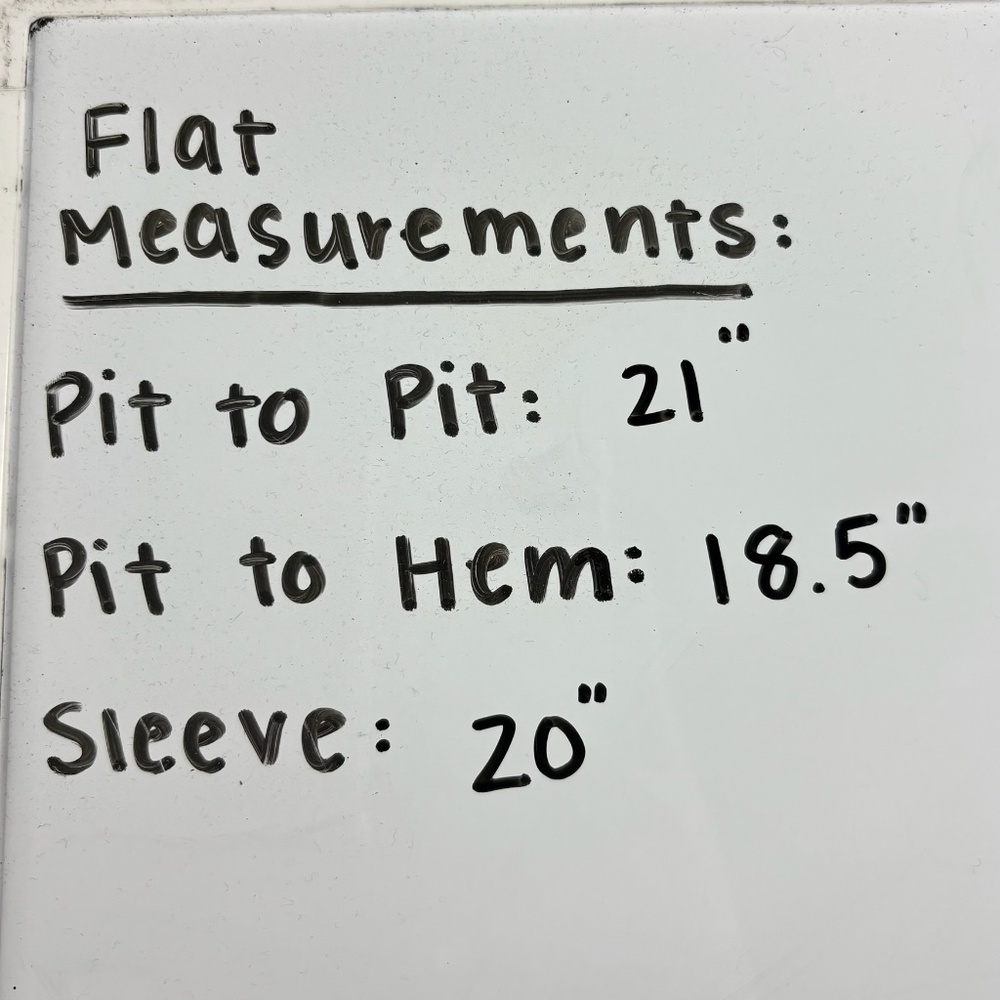 Flat
Measurements:
Pit to Pit: 21"
Pit to Hem: 18.5"
Sleeve: 20"